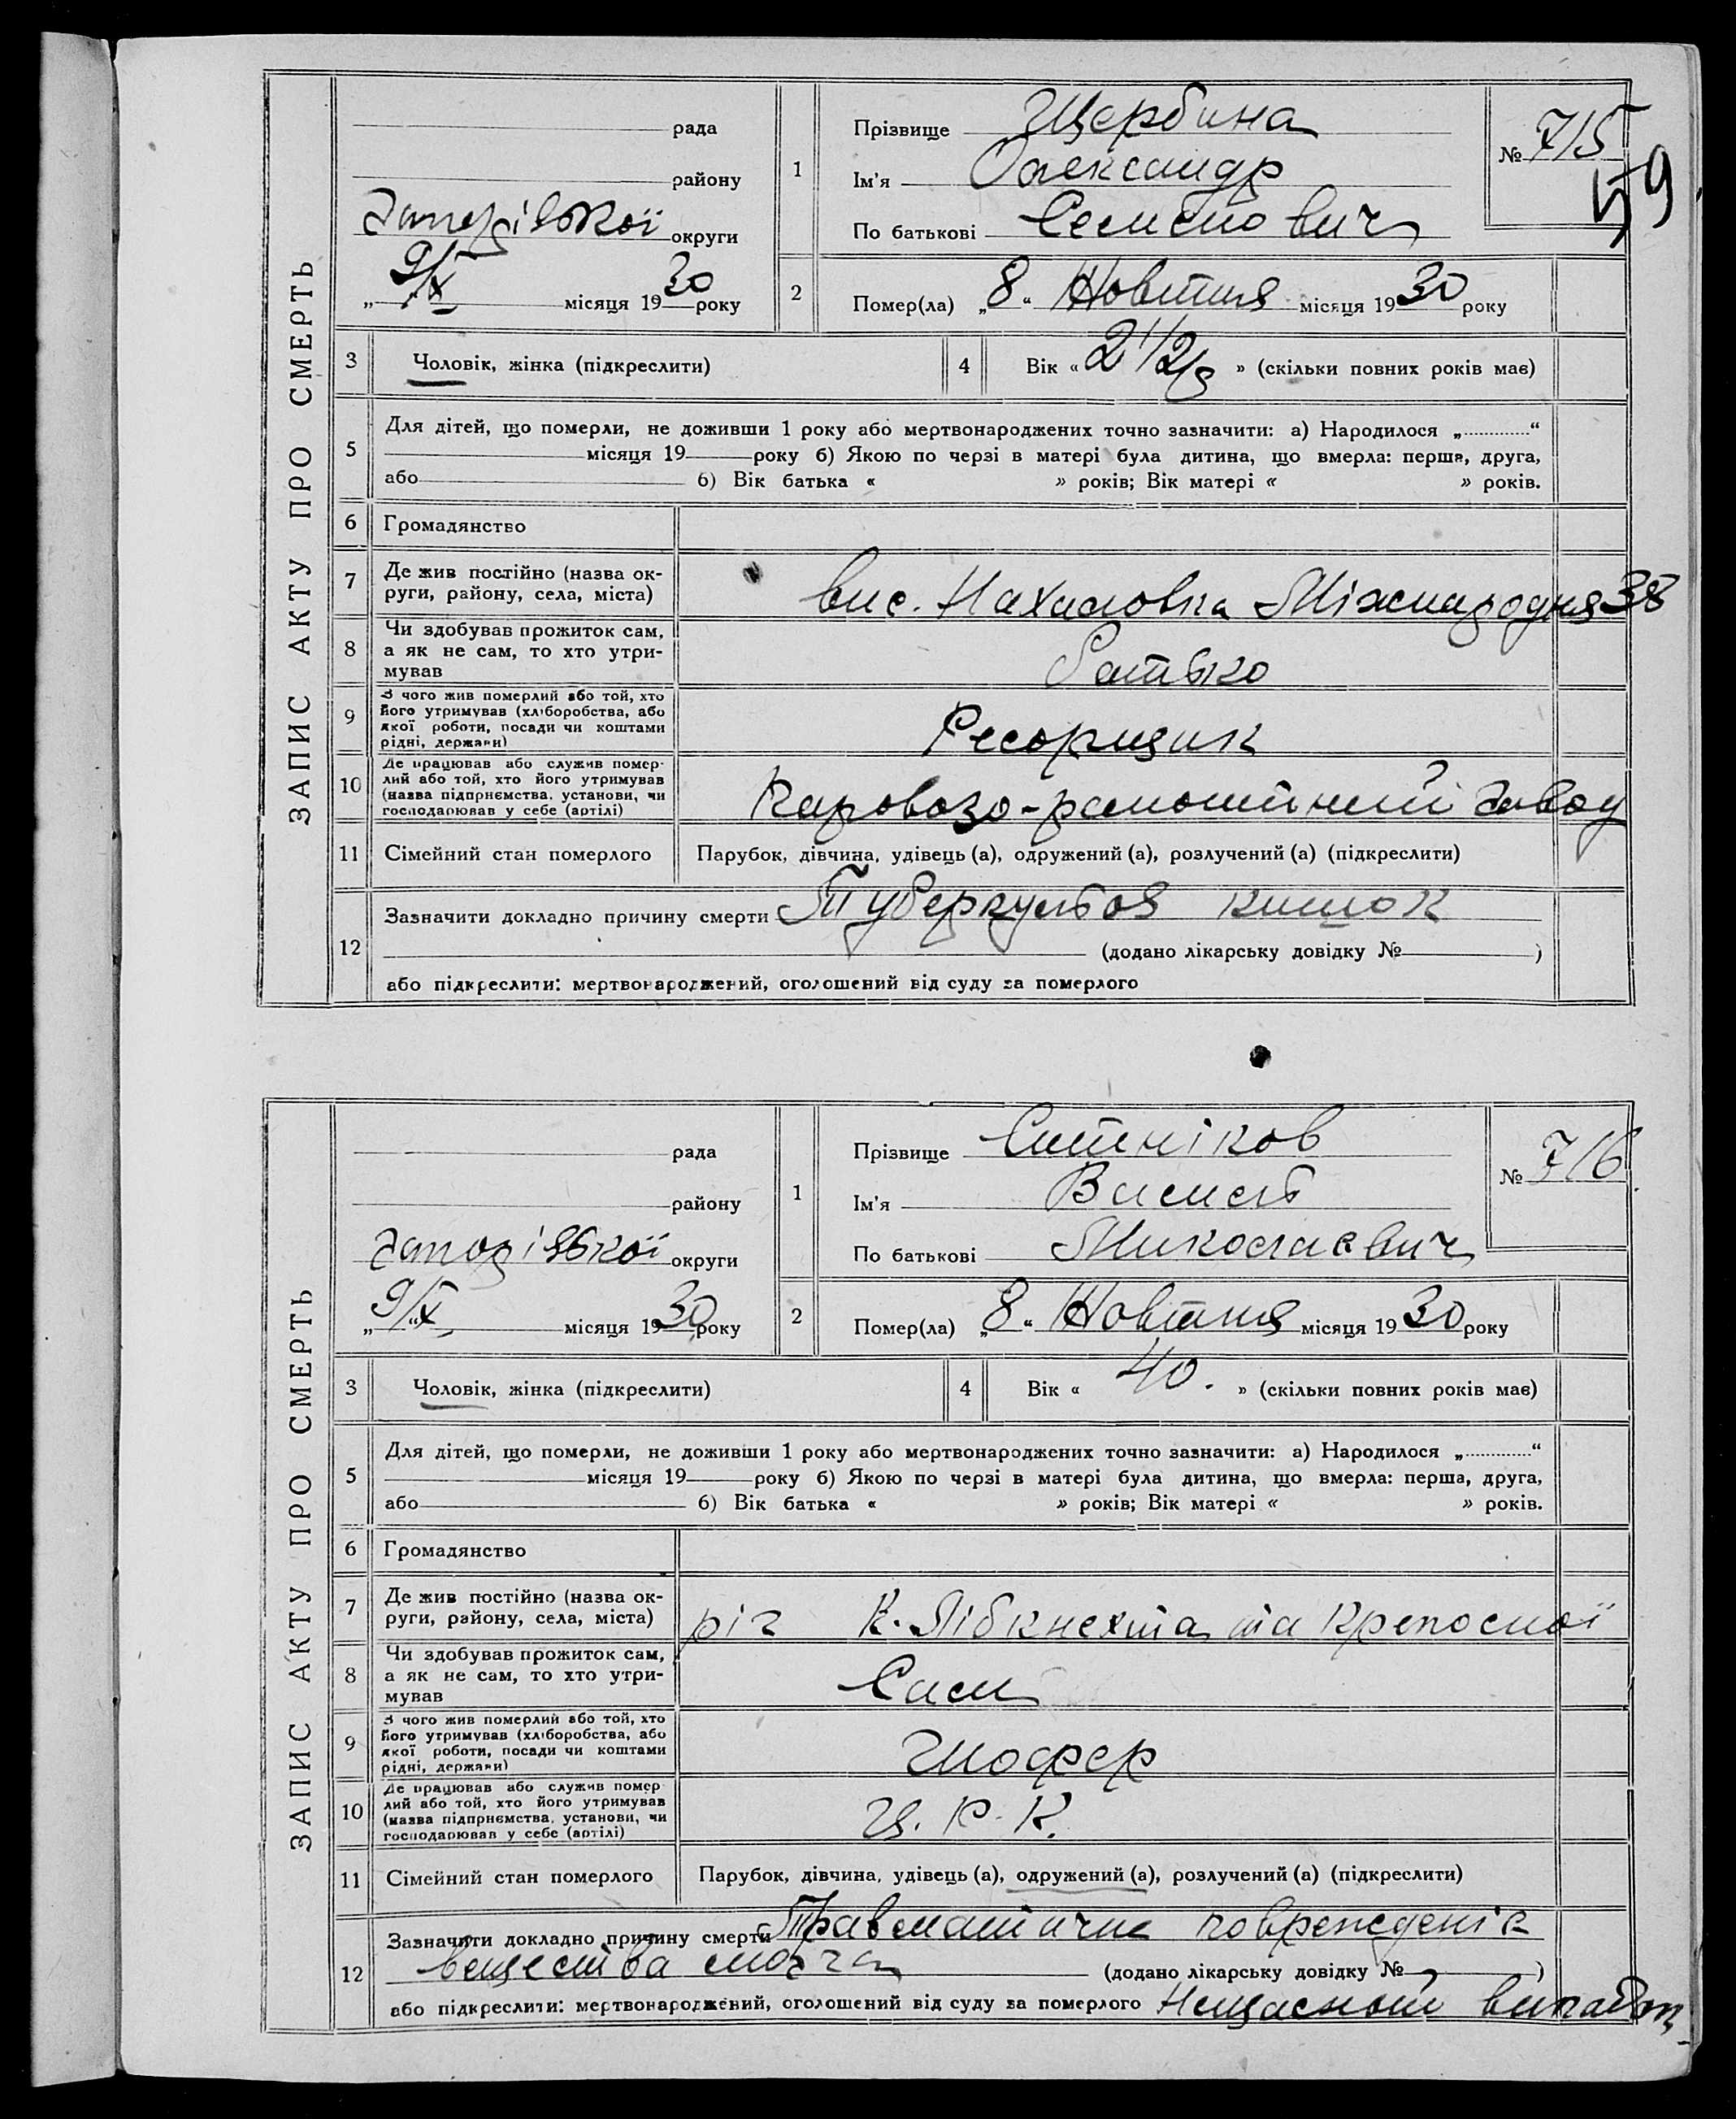 ЗАПИС АКТУ ПРО СМЕРТЬ
рада
району
округи
„ 9/X місяця 1930 року
1
Прізвище Щербина
Ім'я Олександр
По батькові Семенович
№ 715
59
2
Помер(ла) „8“ Жовтня місяця 1930 року
3
Чоловік, жінка (підкреслити)
4
Вік « 2 1/2 » (скільки повних років має)
5
Для дітей, що померли, не доживши 1 року або мертвонароджених точно зазначити: а) Народилося „............“
місяця 19 року б) Якою по черзі в матері була дитина, що вмерла: перша, друга,
або б) Вік батька « » років; Вік матері « » років.
6
Громадянство
7
Де жив постійно (назва ок-
руги, району, села, міста)
вис. Нахаловка Міжнародня 38
8
Чи здобував прожиток сам,
а як не сам, то хто утри-
мував
Батько
9
З чого жив померлий або той, хто
його утримував (хліборобства, або
якої роботи, посади чи коштами
рідні, держави)
Ресорщик
10
Де працював або служив помер-
лий або той, хто його утримував
(назва підприємства, установи, чи
господарював у себе (артілі)
Паровозо-ремонтний завод
11
Сімейний стан померлого
Парубок, дівчина, удівець (а), одружений (а), розлучений (а) (підкреслити)
12
Зазначити докладно причину смерти Туберкульоз кишок
(додано лікарську довідку № )
або підкреслити: мертвонароджений, оголошений від суду за померлого
ЗАПИС АКТУ ПРО СМЕРТЬ
рада
району
округи
„ 9/X місяця 1930 року
1
Прізвище Ситніков
Ім'я Василь
По батькові Миколаєвич
№ 716.
2
Помер(ла) „8“ Жовтня місяця 1930 року
3
Чоловік, жінка (підкреслити)
4
Вік « 40. » (скільки повних років має)
5
Для дітей, що померли, не доживши 1 року або мертвонароджених точно зазначити: а) Народилося „............“
місяця 19 року б) Якою по черзі в матері була дитина, що вмерла: перша, друга,
або б) Вік батька « » років; Вік матері « » років.
6
Громадянство
7
Де жив постійно (назва ок-
руги, району, села, міста)
ріг К. Лібкнехта та Крепосної
8
Чи здобував прожиток сам,
а як не сам, то хто утри-
мував
Сам
9
З чого жив померлий або той, хто
його утримував (хліборобства, або
якої роботи, посади чи коштами
рідні, держави)
Шофер
10
Де працював або служив помер-
лий або той, хто його утримував
(назва підприємства, установи, чи
господарював у себе (артілі)
Ц. Р. К.
11
Сімейний стан померлого
Парубок, дівчина, удівець (а), одружений (а), розлучений (а) (підкреслити)
12
Зазначити докладно причину смерти Травматичне поврежденіє
вещества мозга
(додано лікарську довідку № )
або підкреслити: мертвонароджений, оголошений від суду за померлого Нещасний випадок